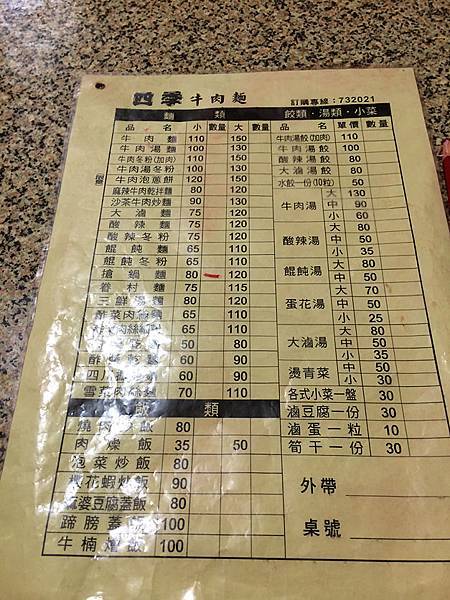 四季牛肉麵 訂購專線：732021
麵類
品名 小 數量 大 數量
牛肉麵 110 150
牛肉湯麵 100 130
牛肉冬粉(加肉) 110 150
牛肉湯冬粉 100 130
牛肉泡蔥餅 120 150
麻辣牛肉乾拌麵 80 120
沙茶牛肉炒麵 90 120
大滷麵 75 120
酸辣麵 80 120
酸辣冬粉 80 120
餛飩麵 65 110
餛飩冬粉 65 110
搶鍋麵 80 120
眷村麵 75 115
三鮮湯麵 80 120
酢菜肉絲麵 65 110
65 110
60 90
60 90
60 90
雪菜肉絲麵 70 110
飯類
燒肉飯 80
肉燥飯 35 50
泡菜炒飯 80
櫻花蝦炒飯 90
麻婆豆腐蓋飯 80
蹄膀蓋飯 100
牛楠燴飯 100
餃類．湯類．小菜
品名 單價 數量
牛肉湯餃(加肉) 110
牛肉湯餃 100
酸辣湯餃 80
大滷湯餃 80
水餃一份(10粒) 50
牛肉湯 大 130
中 90
小 60
酸辣湯 大 80
中 50
小 35
餛飩湯 大 80
中 50
蛋花湯 大 70
中 50
小 25
大滷湯 大 80
中 50
小 35
燙青菜 大 50
小 30
各式小菜一盤 30
滷豆腐一份 30
滷蛋一粒 10
筍干一份 30
外帶
桌號